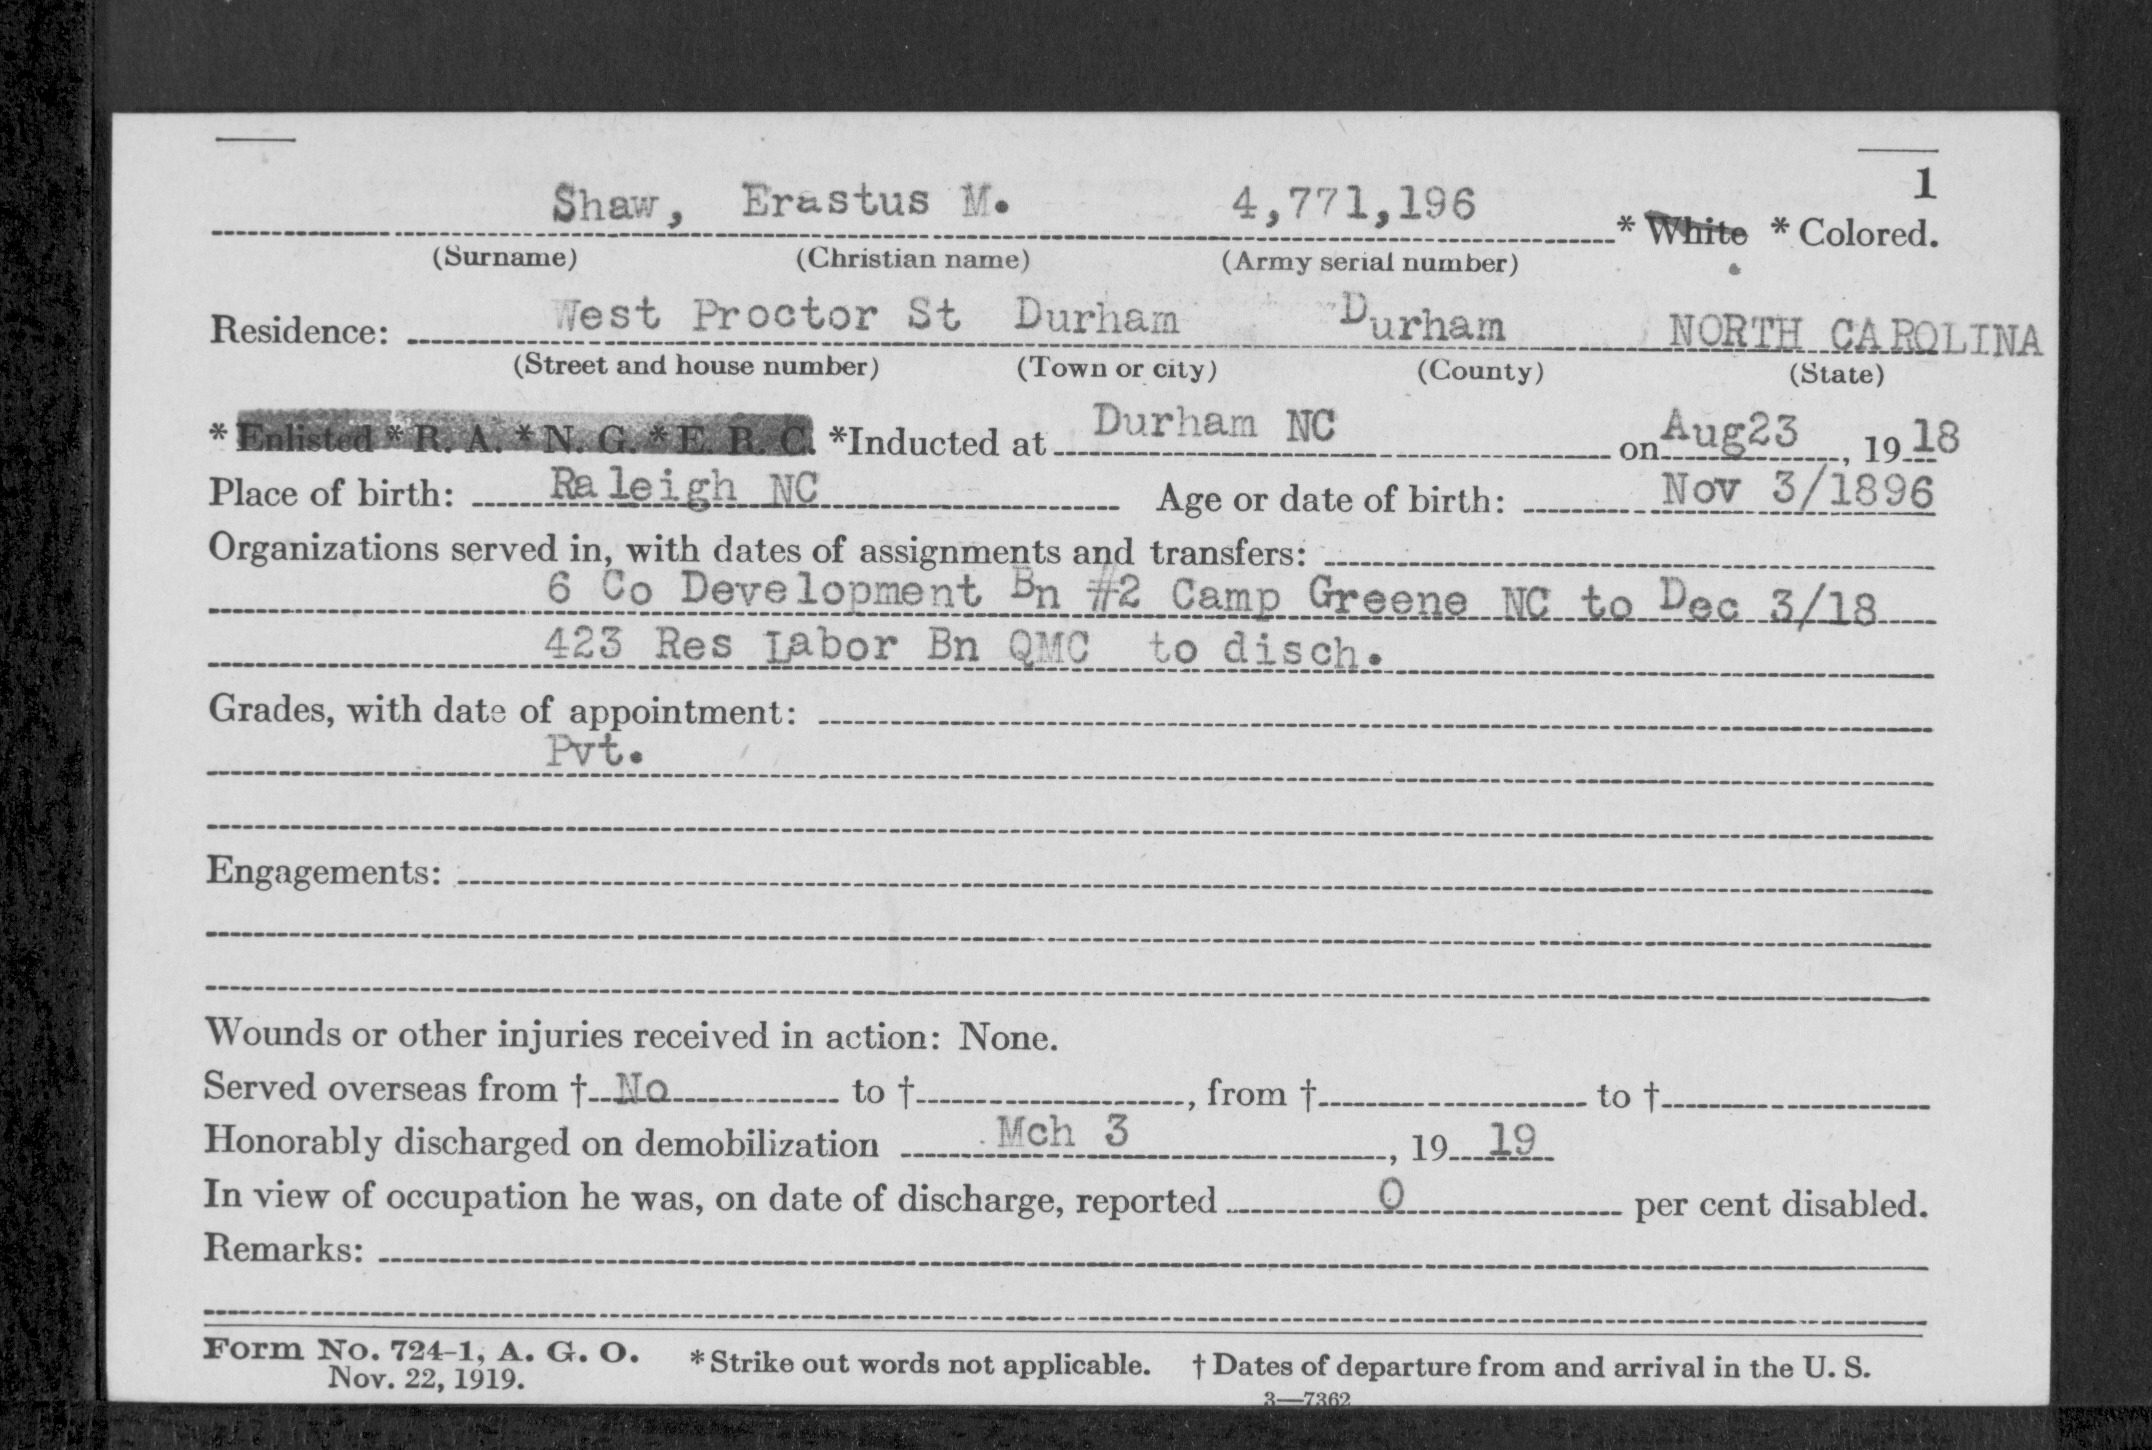 1
Shaw, Erastus M. 4,771,196 * White * Colored.
(Surname) (Christian name) (Army serial number)
Residence: West Proctor St Durham Durham NORTH CAROLINA
(Street and house number) (Town or city) (County) (State)
* Enlisted * R. A. * N. G. * E. R. C. *Inducted at Durham NC on Aug23, 19 18
Place of birth: Raleigh NC Age or date of birth: Nov 3/1896
Organizations served in, with dates of assignments and transfers:
6 Co Development Bn #2 Camp Greene NC to Dec 3/18
423 Res Labor Bn QMC to disch.
Grades, with date of appointment:
Pvt.
Engagements:
Wounds or other injuries received in action: None.
Served overseas from † No to †, from † to †
Honorably discharged on demobilization Mch 3, 19 19
In view of occupation he was, on date of discharge, reported 0 per cent disabled.
Remarks:
Form No. 724-1, A. G. O. * Strike out words not applicable. † Dates of departure from and arrival in the U. S.
Nov. 22, 1919.
3—7362